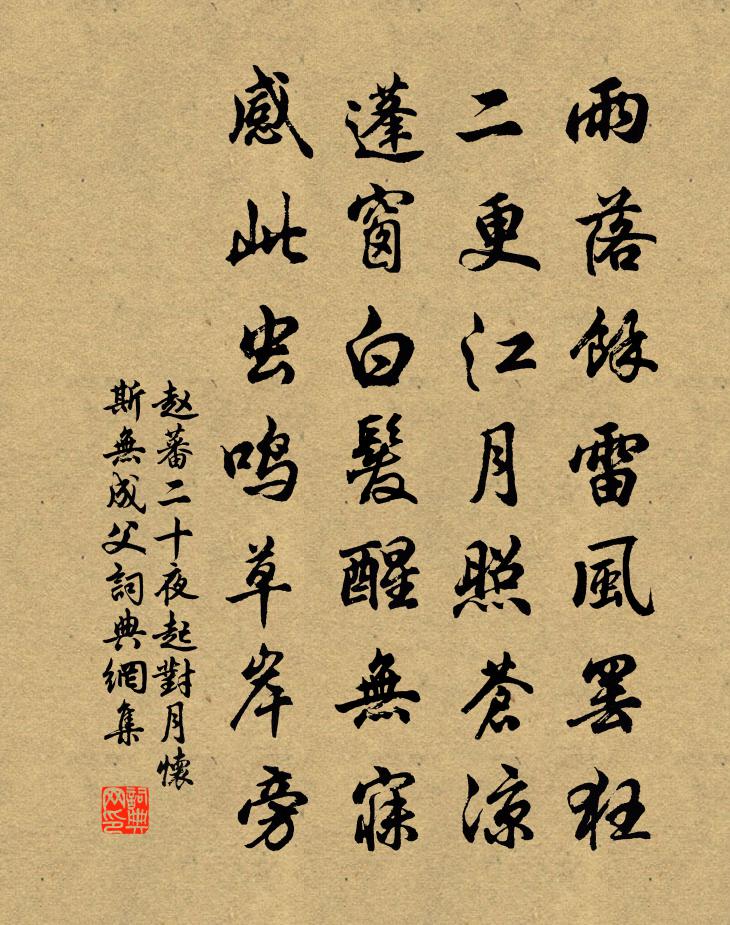 雨落餘雷風罢狂
二更江月照蒼凉
蓬窗白髮醒無寐
感此虫鳴草岸旁
赵蕃二十夜起對月懷
斯無成父詞典網集
詞典网印